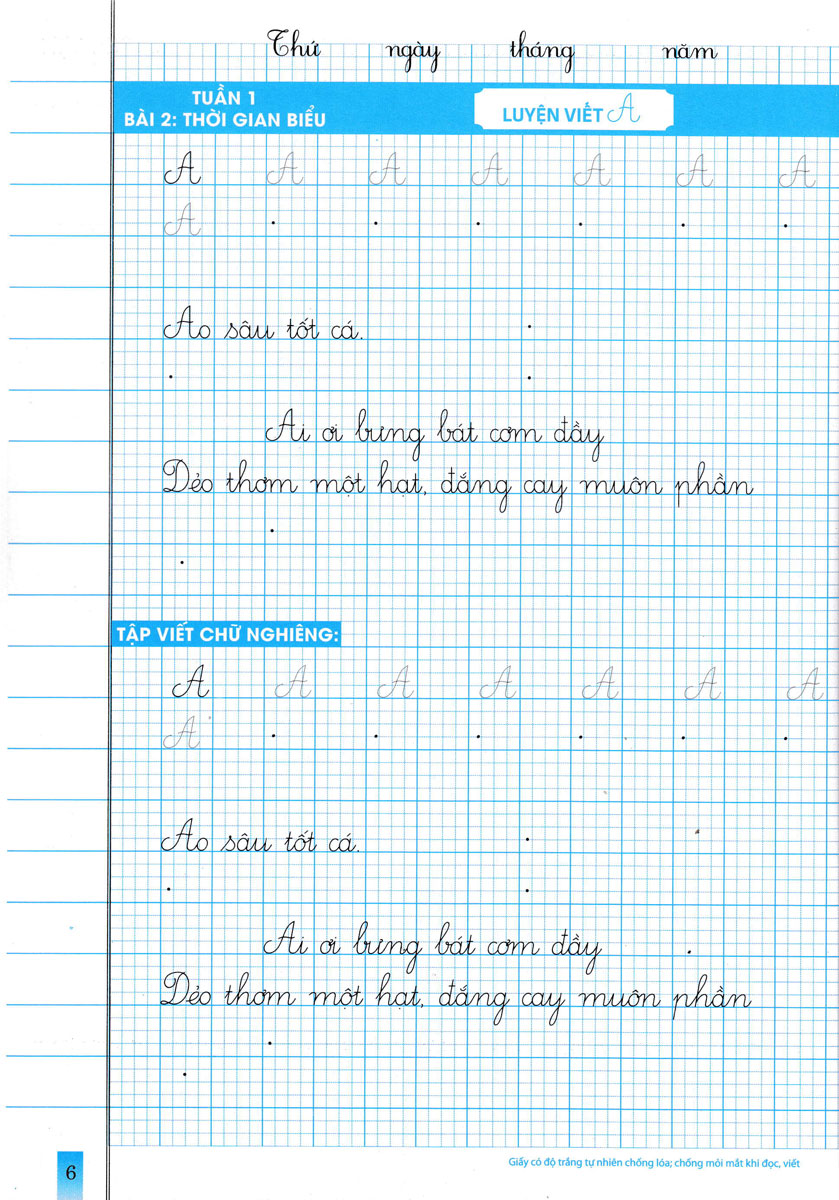 Thứ ngày tháng năm
TUẦN 1
BÀI 2: THỜI GIAN BIỂU
LUYỆN VIẾT A
A A A A A A A
A . . . . . .
Ao sâu tốt cá. .
. .
Ai ơi bưng bát cơm đầy
Dẻo thơm một hạt, đắng cay muôn phần
.
.
TẬP VIẾT CHỮ NGHIÊNG:
A A A A A A A
A . . . . . .
Ao sâu tốt cá. .
. .
Ai ơi bưng bát cơm đầy .
Dẻo thơm một hạt, đắng cay muôn phần
.
.
6
Giấy có độ trắng tự nhiên chống lóa; chống mỏi mắt khi đọc, viết